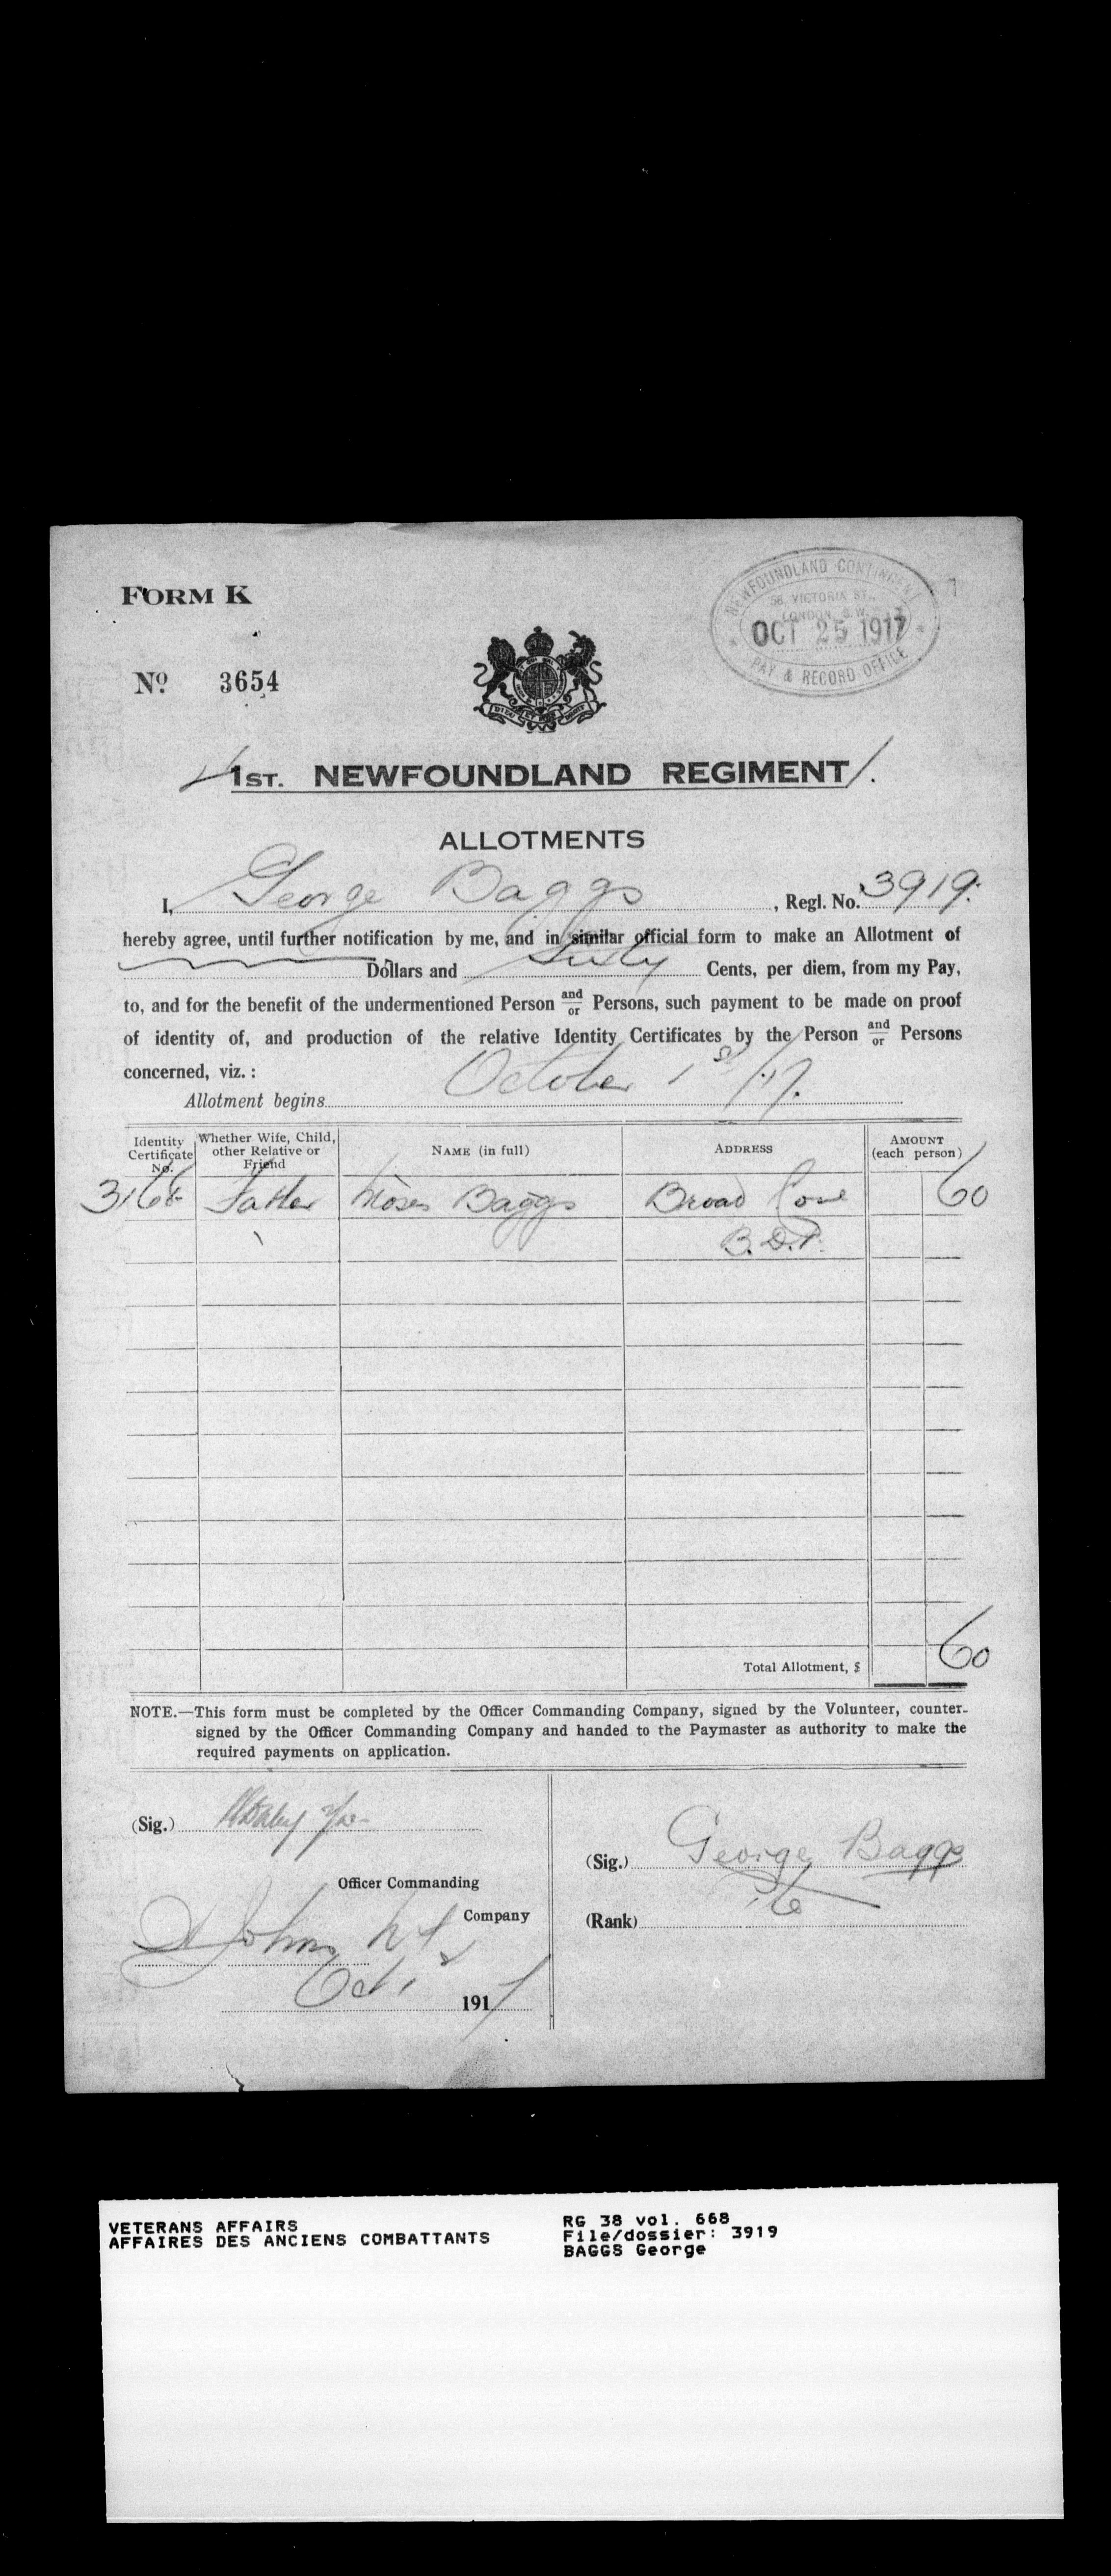 FORM K
NEWFOUNDLAND CONTINGENT
58 VICTORIA ST.,
LONDON, S.W.
OCT 25 1917
PAY & RECORD OFFICE
No. 3654
1ST. NEWFOUNDLAND REGIMENT
ALLOTMENTS
I, George Baggs, Regl. No. 3919.
hereby agree, until further notification by me, and in similar official form to make an Allotment of
Dollars and Sixty Cents, per diem, from my Pay,
to, and for the benefit of the undermentioned Person and/or Persons, such payment to be made on proof
of identity of, and production of the relative Identity Certificates by the Person and/or Persons
concerned, viz. :
Allotment begins October 1st /17.
Identity Certificate No. Whether Wife, Child, other Relative or Friend NAME (in full) ADDRESS AMOUNT (each person)
3168 Father Moses Baggs Broad Cove 60
B.D.V.
Total Allotment, $ 60
NOTE.—This form must be completed by the Officer Commanding Company, signed by the Volunteer, counter-
signed by the Officer Commanding Company and handed to the Paymaster as authority to make the
required payments on application.
(Sig.)
Officer Commanding
Company
St Johns Nfld
Oct 1 1917
(Sig.) George Baggs
(Rank) Pte
VETERANS AFFAIRS
AFFAIRES DES ANCIENS COMBATTANTS
RG 38 vol. 668
File/dossier: 3919
BAGGS George